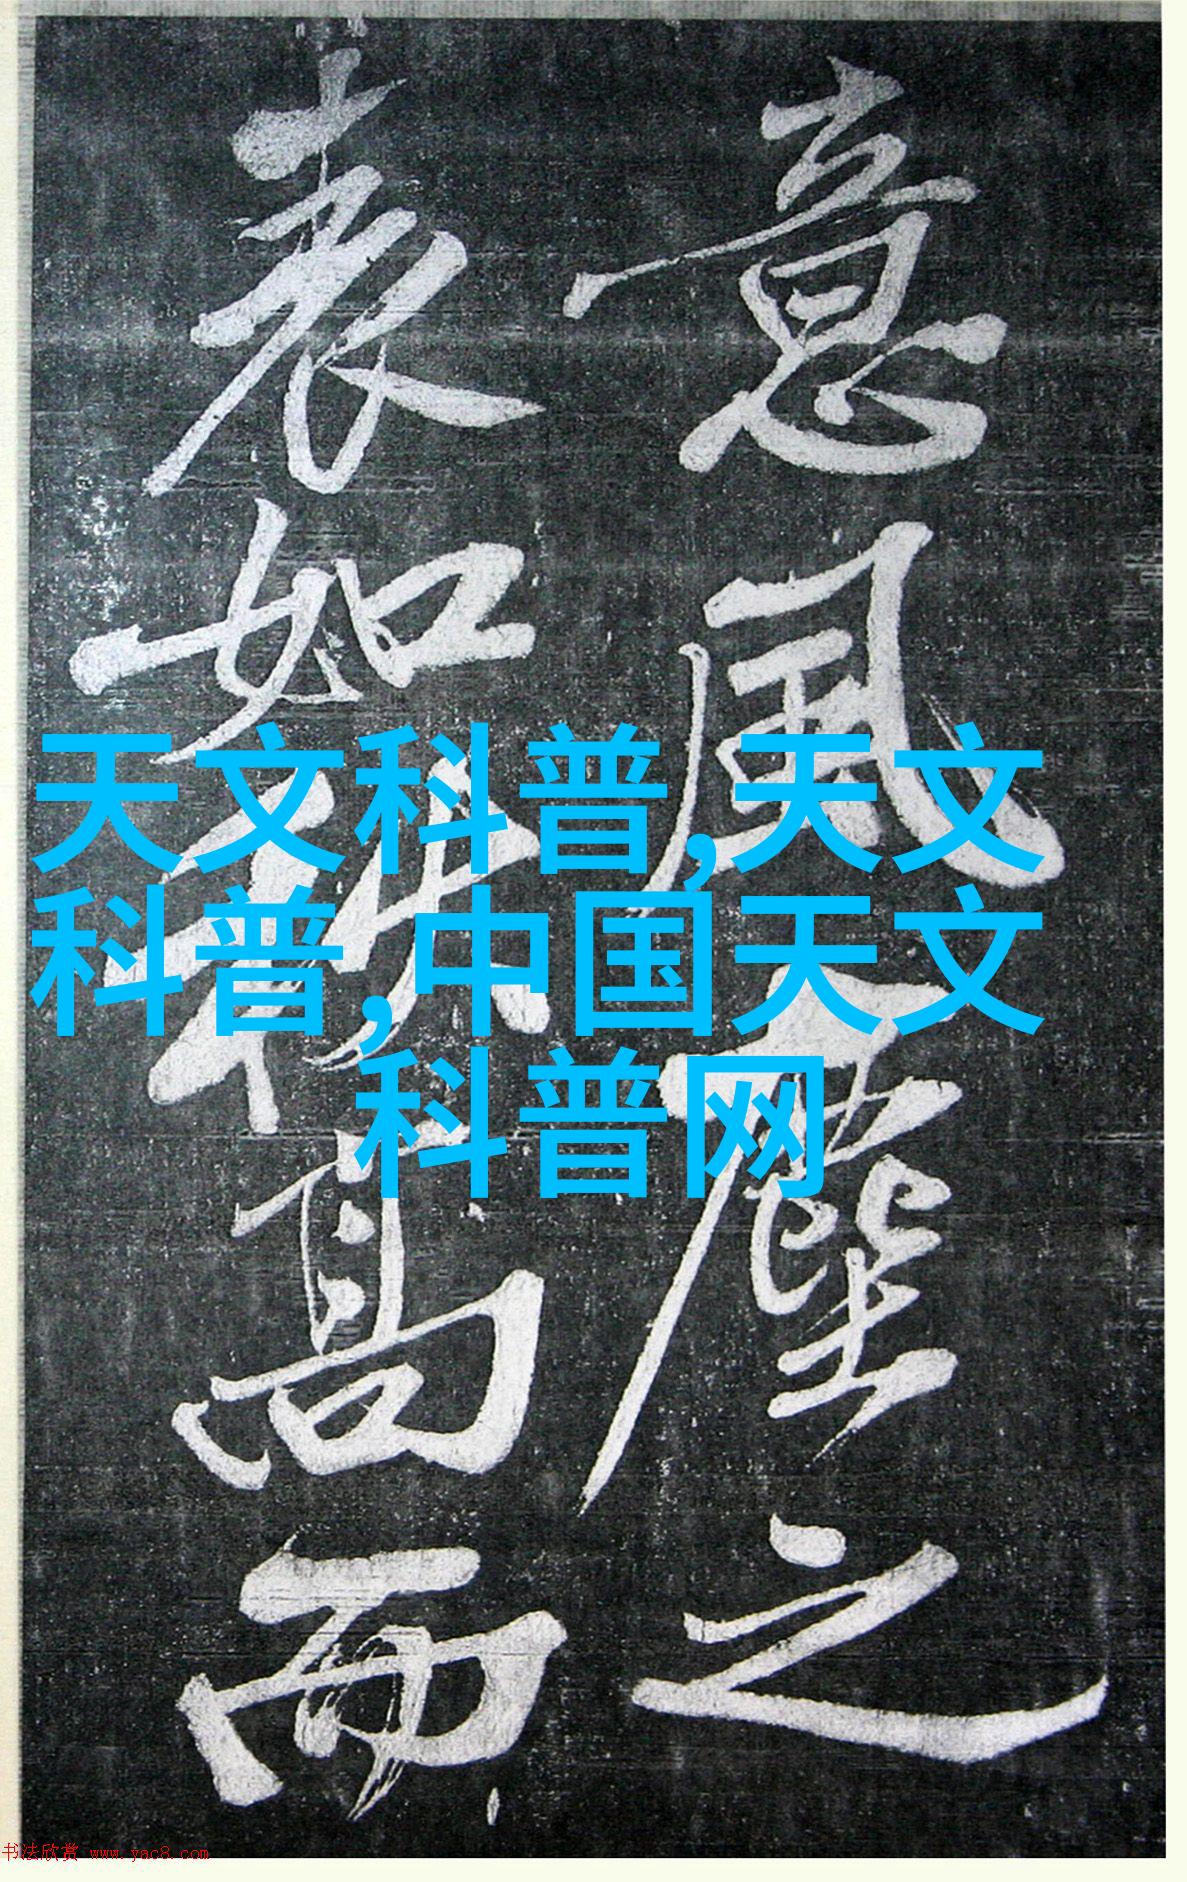 意風塵之
表如秋高而
天文科普,天文
科普,中国天文
科普网
书法欣赏 www.yac8.com